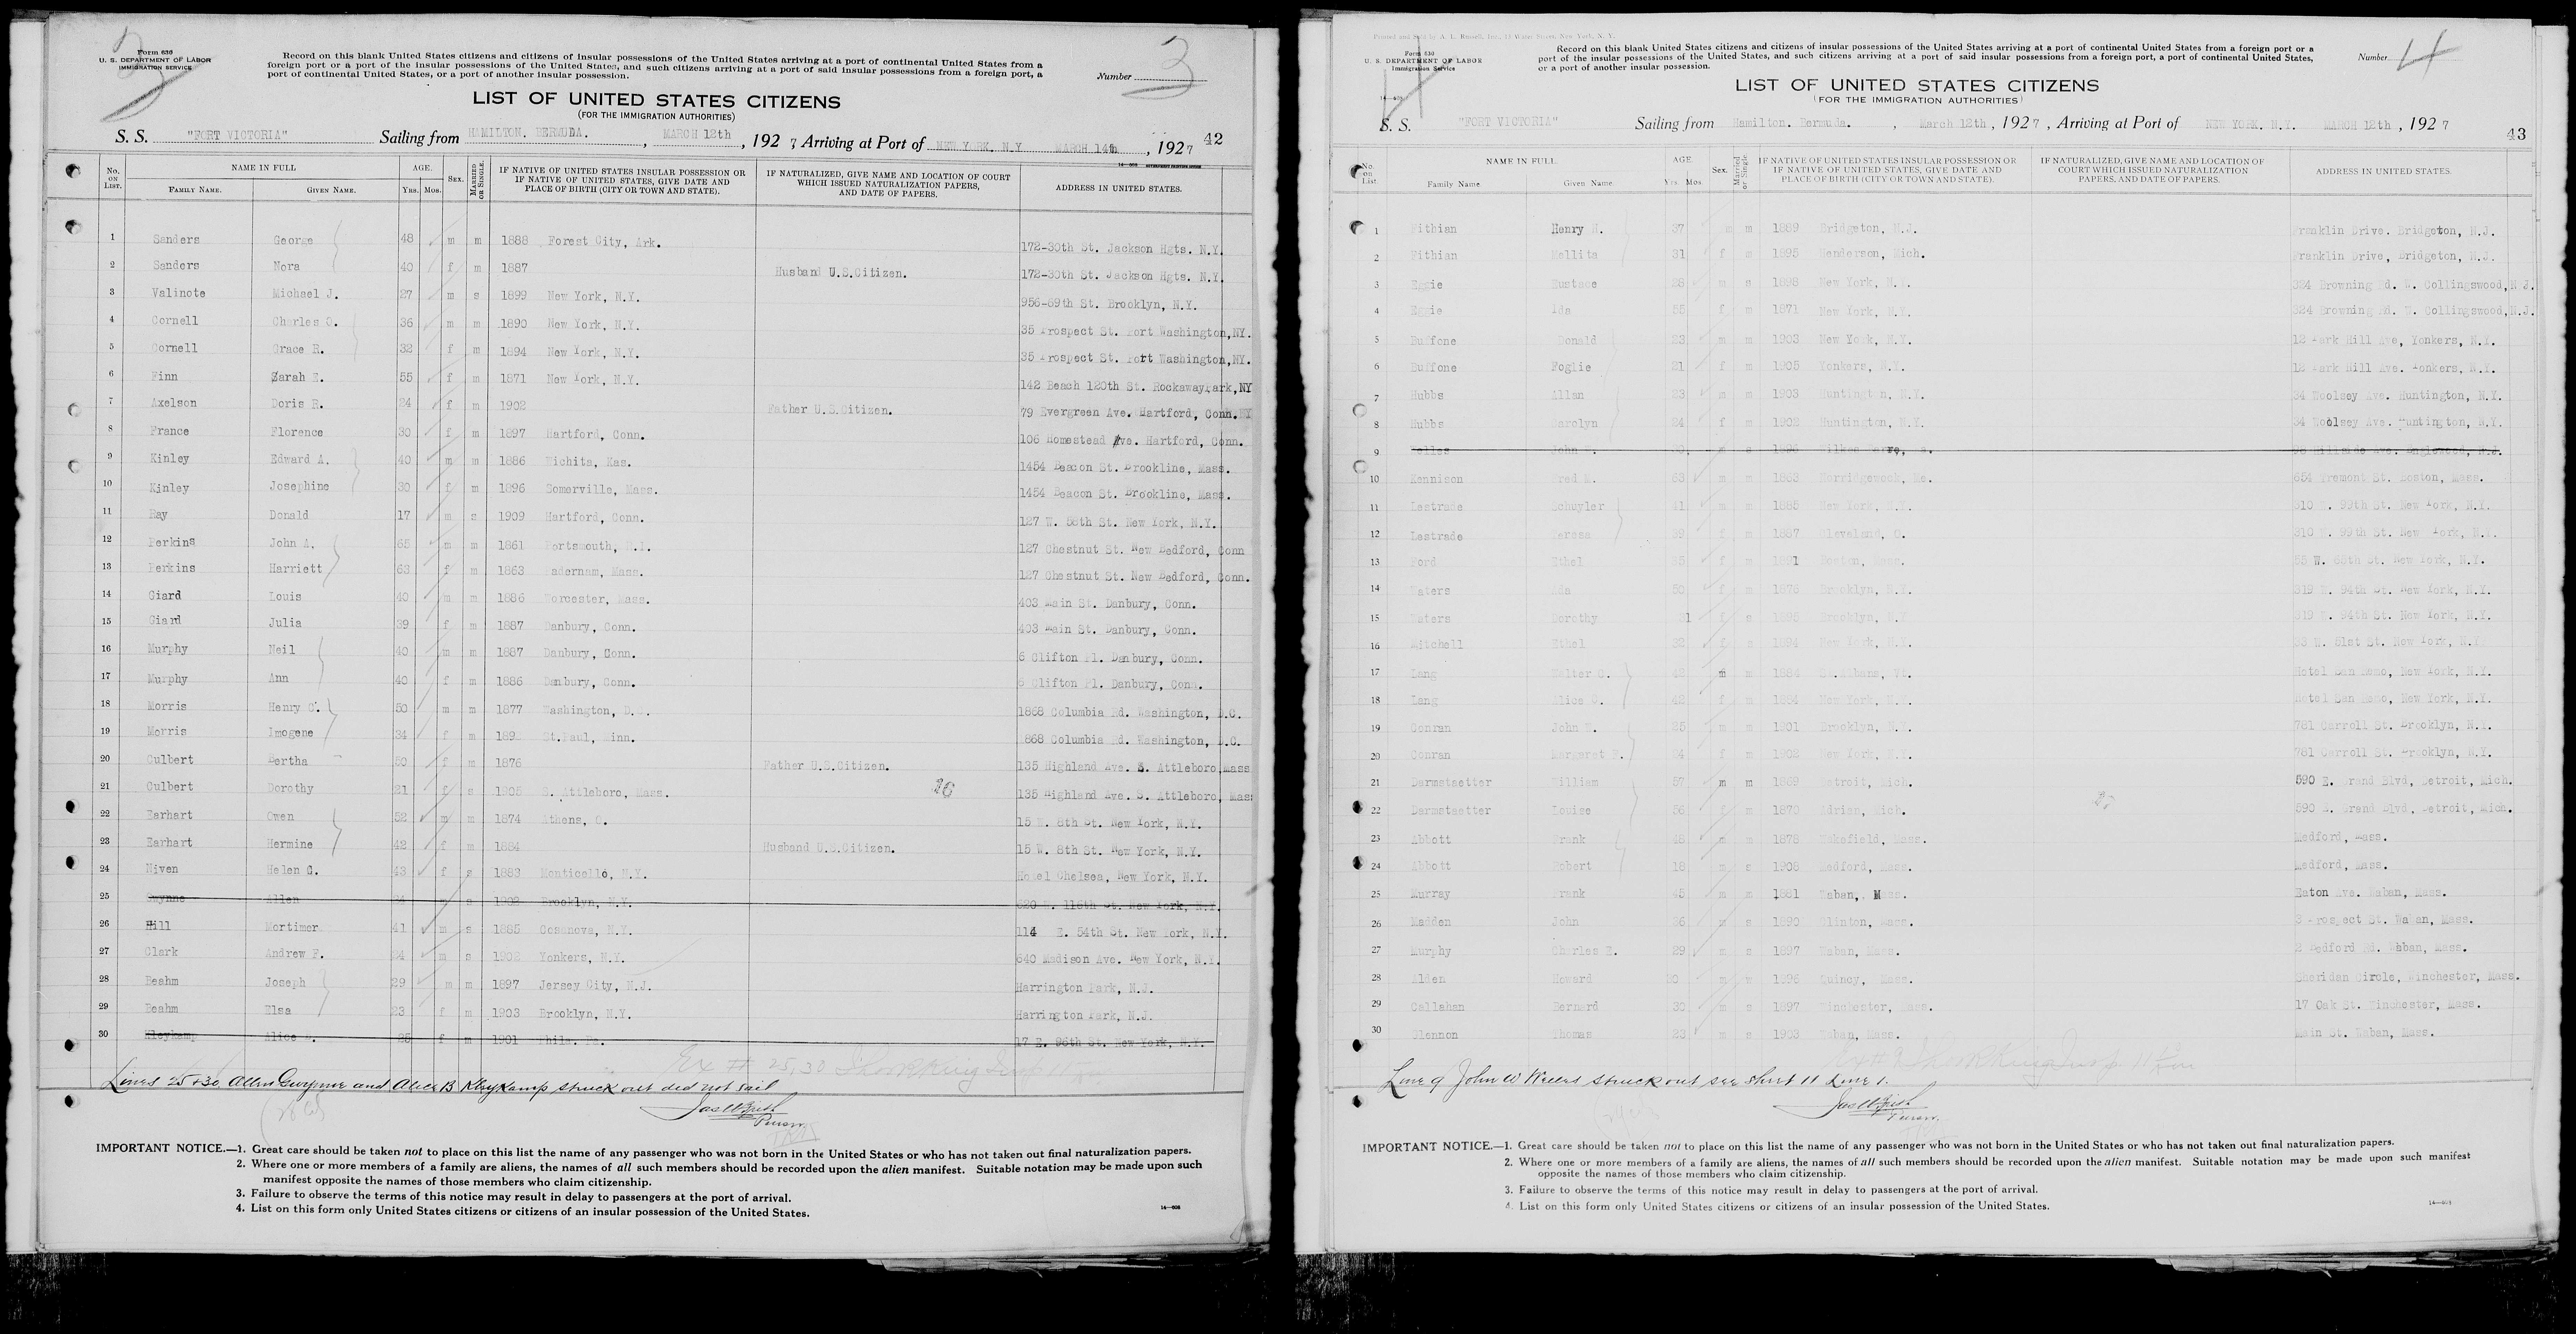 3
Form 630
U. S. DEPARTMENT OF LABOR
IMMIGRATION SERVICE
Record on this blank United States citizens and citizens of insular possessions of the United States arriving at a port of continental United States from a
foreign port or a port of the insular possessions of the United States, and such citizens arriving at a port of said insular possessions from a foreign port, a
port of continental United States, or a port of another insular possession.
Number 3
LIST OF UNITED STATES CITIZENS
(FOR THE IMMIGRATION AUTHORITIES)
S. S. "FORT VICTORIA" Sailing from HAMILTON. BERMUDA. MARCH 12th, 1927, Arriving at Port of NEW YORK. N.Y MARCH 14th, 1927 42
No. ON LIST. NAME IN FULL FAMILY NAME. GIVEN NAME. AGE. Yrs. Mos. SEX. MARRIED OR SINGLE. IF NATIVE OF UNITED STATES INSULAR POSSESSION OR IF NATIVE OF UNITED STATES, GIVE DATE AND PLACE OF BIRTH (CITY OR TOWN AND STATE). IF NATURALIZED, GIVE NAME AND LOCATION OF COURT WHICH ISSUED NATURALIZATION PAPERS, AND DATE OF PAPERS. ADDRESS IN UNITED STATES.
1 Sanders George 48 m m 1888 Forest City, Ark. 172-30th St. Jackson Hgts. N.Y.
2 Sanders Nora 40 f m 1887 Husband U.S.Citizen. 172-30th St. Jackson Hgts. N.Y.
3 Valinote Michael J. 27 m s 1899 New York, N.Y. 956-69th St. Brooklyn, N.Y.
4 Cornell Charles O. 36 m m 1890 New York, N.Y. 35 Prospect St. Port Washington, NY.
5 Cornell Grace R. 32 f m 1894 New York, N.Y. 35 Prospect St. Port Washington, NY.
6 Finn Sarah E. 55 f m 1871 New York, N.Y. 142 Beach 120th St. Rockaway Park, NY
7 Axelson Doris R. 24 f m 1902 Father U.S.Citizen. 79 Evergreen Ave. Hartford, Conn.
8 France Florence 30 f m 1897 Hartford, Conn. 106 Homestead Ave. Hartford, Conn.
9 Kinley Edward A. 40 m m 1886 Wichita, Kas. 1454 Beacon St. Brookline, Mass.
10 Kinley Josephine 30 f m 1896 Somerville, Mass. 1454 Beacon St. Brookline, Mass.
11 Ray Donald 17 m s 1909 Hartford, Conn. 127 W. 58th St. New York, N.Y.
12 Perkins John A. 65 m m 1861 Portsmouth, 127 Chestnut St. New Bedford, Conn
13 Perkins Harriett 63 f m 1863 Mass. 127 Chestnut St. New Bedford, Conn.
14 Giard Louis 40 m m 1886 Worcester, Mass. 403 Main St. Danbury, Conn.
15 Giard Julia 39 f m 1887 Danbury, Conn. 403 Main St. Danbury, Conn.
16 Murphy Neil 40 m m 1887 Danbury, Conn. 6 Clifton Pl. Danbury, Conn.
17 Murphy Ann 40 f m 1886 Danbury, Conn. 6 Clifton Pl. Danbury, Conn.
18 Morris Henry C. 50 m m 1877 Washington, D.C. 1868 Columbia Rd. Washington, D.C.
19 Morris Imogene 34 f m 189 St.Paul, Minn. 1868 Columbia Rd. Washington, D.C.
20 Culbert Bertha 50 f m 1876 Father U.S.Citizen. 135 Highland Ave. S. Attleboro, Mass
21 Culbert Dorothy 21 f s 1905 S. Attleboro, Mass. 26 135 Highland Ave. S. Attleboro, Mass
22 Earhart Owen 52 m m 1874 Athens, O. 15 W. 8th St. New York, N.Y.
23 Earhart Hermine 42 f m 1884 Husband U.S.Citizen. 15 W. 8th St. New York, N.Y.
24 Niven Helen G. 43 f s 1883 Monticello, N.Y. Hotel Chelsea, New York, N.Y.
25 Gwynne Allen 24 m s 1902 Brooklyn, N.Y. 620 W. 116th St. New York, N.Y.
26 Hill Mortimer 41 m s 1885 Casanova, N.Y. 114 E. 54th St. New York, N.Y.
27 Clark Andrew F. 24 m s 1902 Yonkers, N.Y. 640 Madison Ave. New York, N.Y.
28 Beahm Joseph 29 m m 1897 Jersey City, N.J. Harrington Park, N.J.
29 Beahm Elsa 23 f m 1903 Brooklyn, N.Y. Harrington Park, N.J.
30 Kleykamp Alice B. 25 f m 1901 Phila. Pa. 17 E. 96th St. New York, N.Y.
Ex # 25, 30
Lines 25 + 30, Allen Gwynne and Alice B Kleykamp struck out did not sail
Purser
IMPORTANT NOTICE.—1. Great care should be taken not to place on this list the name of any passenger who was not born in the United States or who has not taken out final naturalization papers.
2. Where one or more members of a family are aliens, the names of all such members should be recorded upon the alien manifest. Suitable notation may be made upon such
manifest opposite the names of those members who claim citizenship.
3. Failure to observe the terms of this notice may result in delay to passengers at the port of arrival.
4. List on this form only United States citizens or citizens of an insular possession of the United States.
14—608
Printed and Sold by A. L. Russell, Inc., 12 Water Street, New York, N. Y.
4
Form 630
U. S. DEPARTMENT OF LABOR
Immigration Service
Record on this blank United States citizens and citizens of insular possessions of the United States arriving at a port of continental United States from a foreign port or a
port of the insular possessions of the United States, and such citizens arriving at a port of said insular possessions from a foreign port, a port of continental United States,
or a port of another insular possession.
Number 4
LIST OF UNITED STATES CITIZENS
(FOR THE IMMIGRATION AUTHORITIES)
S. S. "FORT VICTORIA" Sailing from Hamilton. Bermuda. , March 12th, 1927, Arriving at Port of NEW YORK. N.Y. MARCH 12th, 1927 43
No. on List. NAME IN FULL. Family Name Given Name AGE Yrs. Mos. Sex. Married or Single IF NATIVE OF UNITED STATES INSULAR POSSESSION OR IF NATIVE OF UNITED STATES, GIVE DATE AND PLACE OF BIRTH (CITY OR TOWN AND STATE). IF NATURALIZED, GIVE NAME AND LOCATION OF COURT WHICH ISSUED NATURALIZATION PAPERS, AND DATE OF PAPERS. ADDRESS IN UNITED STATES.
1 Fithian Henry H. 37 m m 1889 Bridgeton, N.J. Franklin Drive. Bridgeton, N.J.
2 Fithian Mellita 31 f m 1895 Henderson, Mich. Franklin Drive, Bridgeton, N.J.
3 Eggie Eustace 28 m s 1898 New York, N.Y. 324 Browning Rd. W. Collingswood, N.J.
4 Eggie Ida 55 f m 1871 New York, N.Y. 324 Browning Rd. W. Collingswood, N.J.
5 Buffone Donald 23 m m 1903 New York, N.Y. 12 Park Hill Ave, Yonkers, N.Y.
6 Buffone Foglie 21 f m 1905 Yonkers, N.Y. 12 Park Hill Ave. Yonkers, N.Y.
7 Hubbs Allan 23 m m 1903 Huntington, N.Y. 34 Woolsey Ave. Huntington, N.Y.
8 Hubbs Carolyn 24 f m 1902 Huntington, N.Y. 34 Woolsey Ave. Huntington, N.Y.
9 John W. m s Wilkes Barre, Hillside Ave. Englewood, N.J.
10 Kennison Fred M. 63 m m 1863 Norridgewock, Me. 654 Tremont St. Boston, Mass.
11 Lestrade Schuyler 41 m m 1885 New York, N.Y. 310 W. 99th St. New York, N.Y.
12 Lestrade Teresa 39 f m 1887 Cleveland, O. 310 W. 99th St. New York, N.Y.
13 Ford Ethel 35 f m 1891 Boston, Mass. 55 W. 68th St. New York, N.Y.
14 Waters Ada 50 f m 1876 Brooklyn, N.Y. 319 W. 94th St. New York, N.Y.
15 Waters Dorothy 31 f s 1895 Brooklyn, N.Y 319 W. 94th St. New York, N.Y.
16 Mitchell Ethel 32 f s 1894 New York, N.Y. 33 W. 51st St. New York, N.Y
17 Lang Walter C. 42 m m 1884 St.Albans, Vt. Hotel San Remo, New York, N.Y.
18 Lang Alice C. 42 f m 1884 New York, N.Y. Hotel San Remo, New York, N.Y.
19 Conran John 25 m m 1901 Brooklyn, N.Y. 781 Carroll St. Brooklyn, N.Y.
20 Conran Margaret F. 24 f m 1902 New York, N.Y. 781 Carroll St. Brooklyn, N.Y.
21 Darmstaetter William 57 m m 1869 Detroit, Mich. 590 E. Grand Blvd, Detroit, Mich.
22 Darmstaetter Louise 56 f m 1870 Adrian, Mich. 590 E. Grand Blvd, Detroit, Mich.
23 Abbott Frank 48 m m 1878 Wakefield, Mass. Medford, Mass.
24 Abbott Robert 18 m s 1908 Medford, Mass. Medford, Mass.
25 Murray Frank 45 m m 1881 Waban, Mass. Eaton Ave. Waban, Mass.
26 Madden John 36 m s 1890 Clinton, Mass. 3 Prospect St. Waban, Mass.
27 Murphy Charles E. 29 m s 1897 Waban, Mass. 2 Bedford Rd. Waban, Mass.
28 Alden Howard 30 m w 1896 Quincy, Mass. Sheridan Circle, Winchester, Mass.
29 Callahan Bernard 30 m s 1897 Winchester, Mass. 17 Oak St. Winchester, Mass.
30 Glennon Thomas 23 m s 1903 Waban, Mass. Main St. Waban, Mass.
Line 9 John W Welles struck out see sheet 11 Line 1.
Purser
IMPORTANT NOTICE.—1. Great care should be taken not to place on this list the name of any passenger who was not born in the United States or who has not taken out final naturalization papers.
2. Where one or more members of a family are aliens, the names of all such members should be recorded upon the alien manifest. Suitable notation may be made upon such manifest
opposite the names of those members who claim citizenship.
3. Failure to observe the terms of this notice may result in delay to passengers at the port of arrival.
4. List on this form only United States citizens or citizens of an insular possession of the United States.